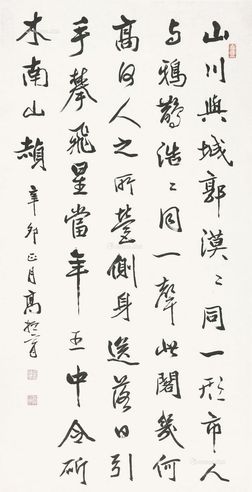 山川與城郭漠々同一形市人
与鴉鵲浩々同一聲此閣幾何
高何人之所營側身送落日引
手攀飛星當年王中令斫
木南山赬
辛卯正月高振霄